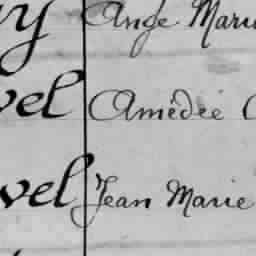 Ange Marie
vel Amédée
vel Jean Marie